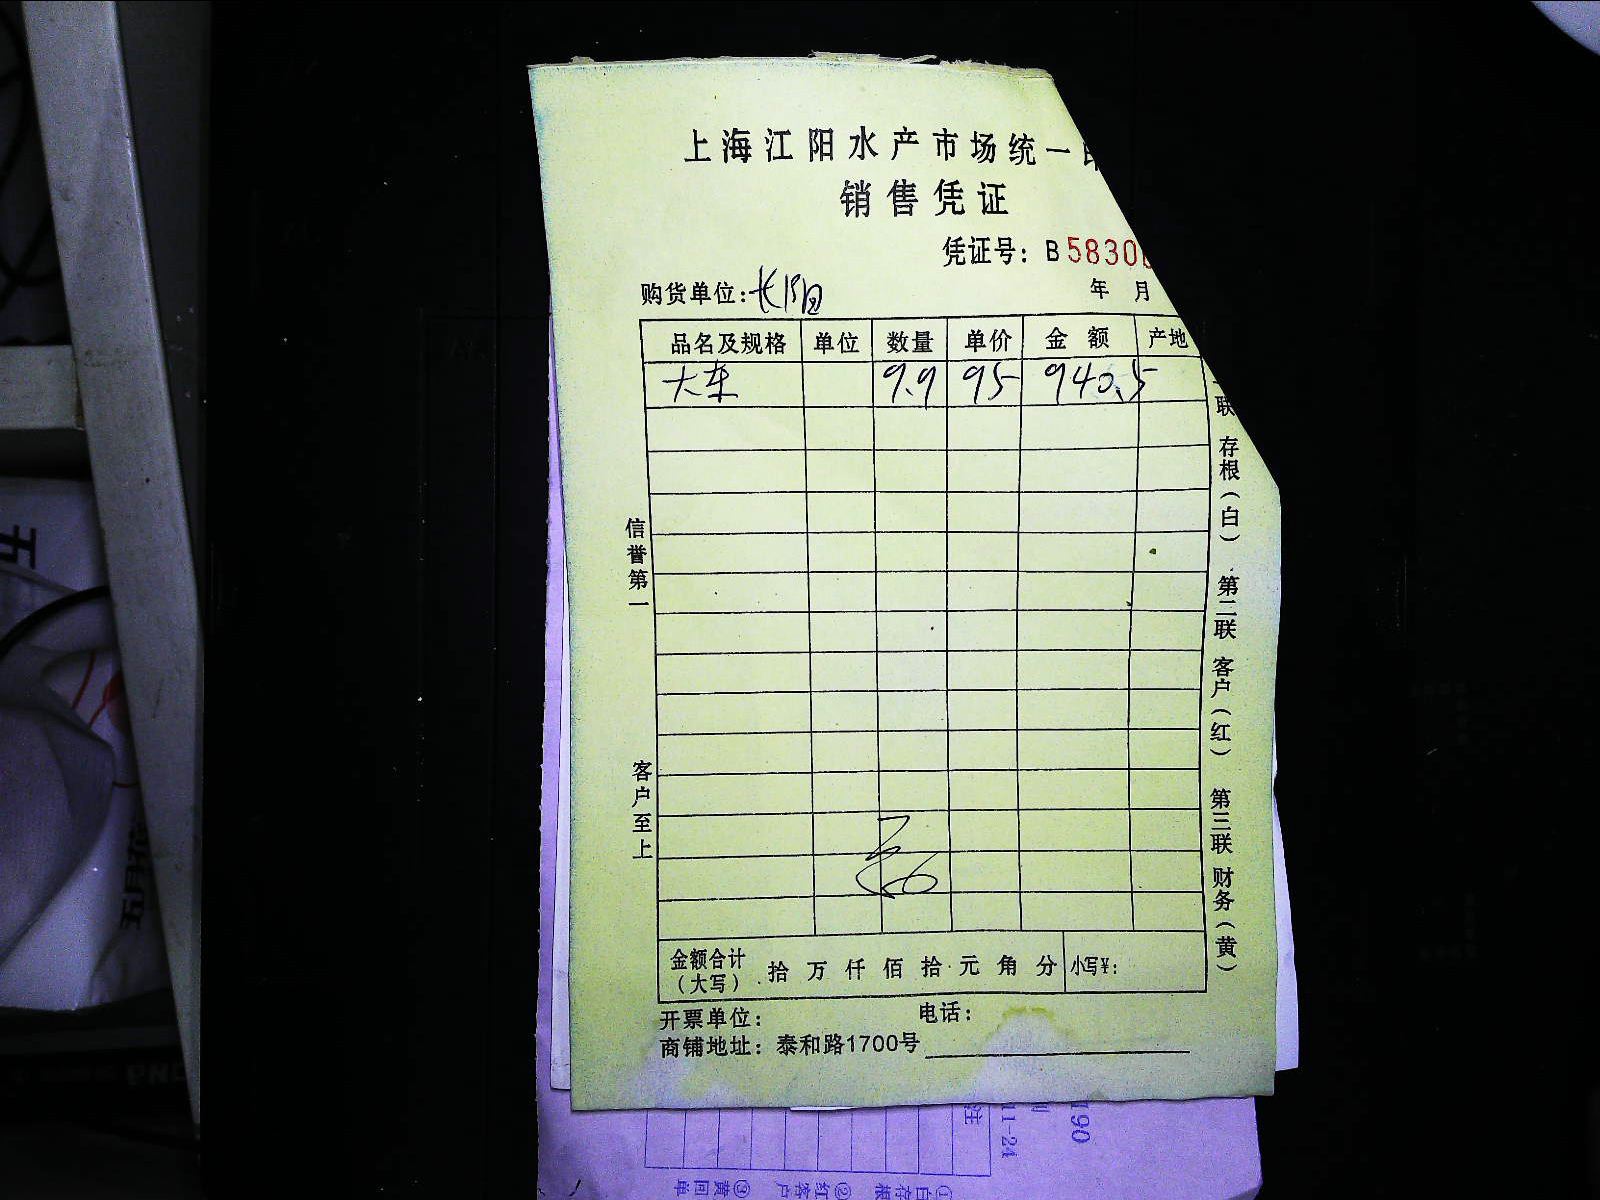 上海江阳水产市场统一
销售凭证
凭证号：B 5830
购货单位：长阳
年 月
品名及规格 单位 数量 单价 金额 产地
大车 9.9 95 940.5
信誉第一
客户至上
联 存根（白） 第二联 客户（红） 第三联 财务（黄）
金额合计（大写） 拾 万 仟 佰 拾 元 角 分 小写¥：
开票单位： 电话：
商铺地址：泰和路1700号
190
11-24
注
①白存根 ②红客户 ③黄回单
五